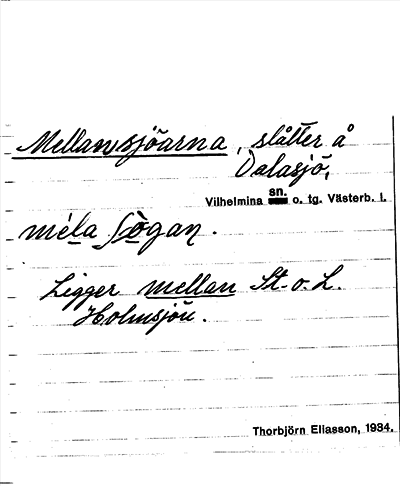 Mellansjöarna, slåtter å
Dalasjö,
sn.
Vilhelmina o. tg. Västerb. l.
Ligger mellan St. o. L.
Holmsjön.
Thorbjörn Eliasson, 1934.